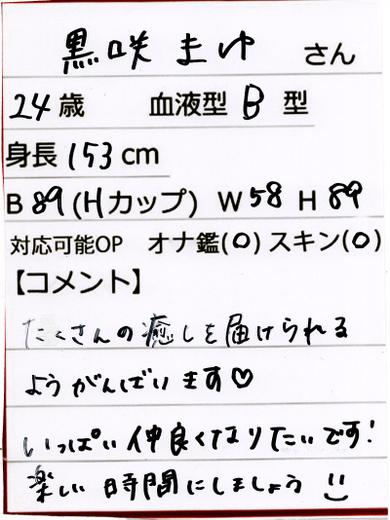 黒咲 まゆ さん
24歳 血液型 B 型
身長 153 cm
B 89 (Hカップ) W 58 H 89
対応可能OP オナ鑑(○) スキン(○)
【コメント】
たくさんの癒しを届けられる
ようがんばります♡
いっぱい仲良くなりたいです!
楽しい時間にしましょう